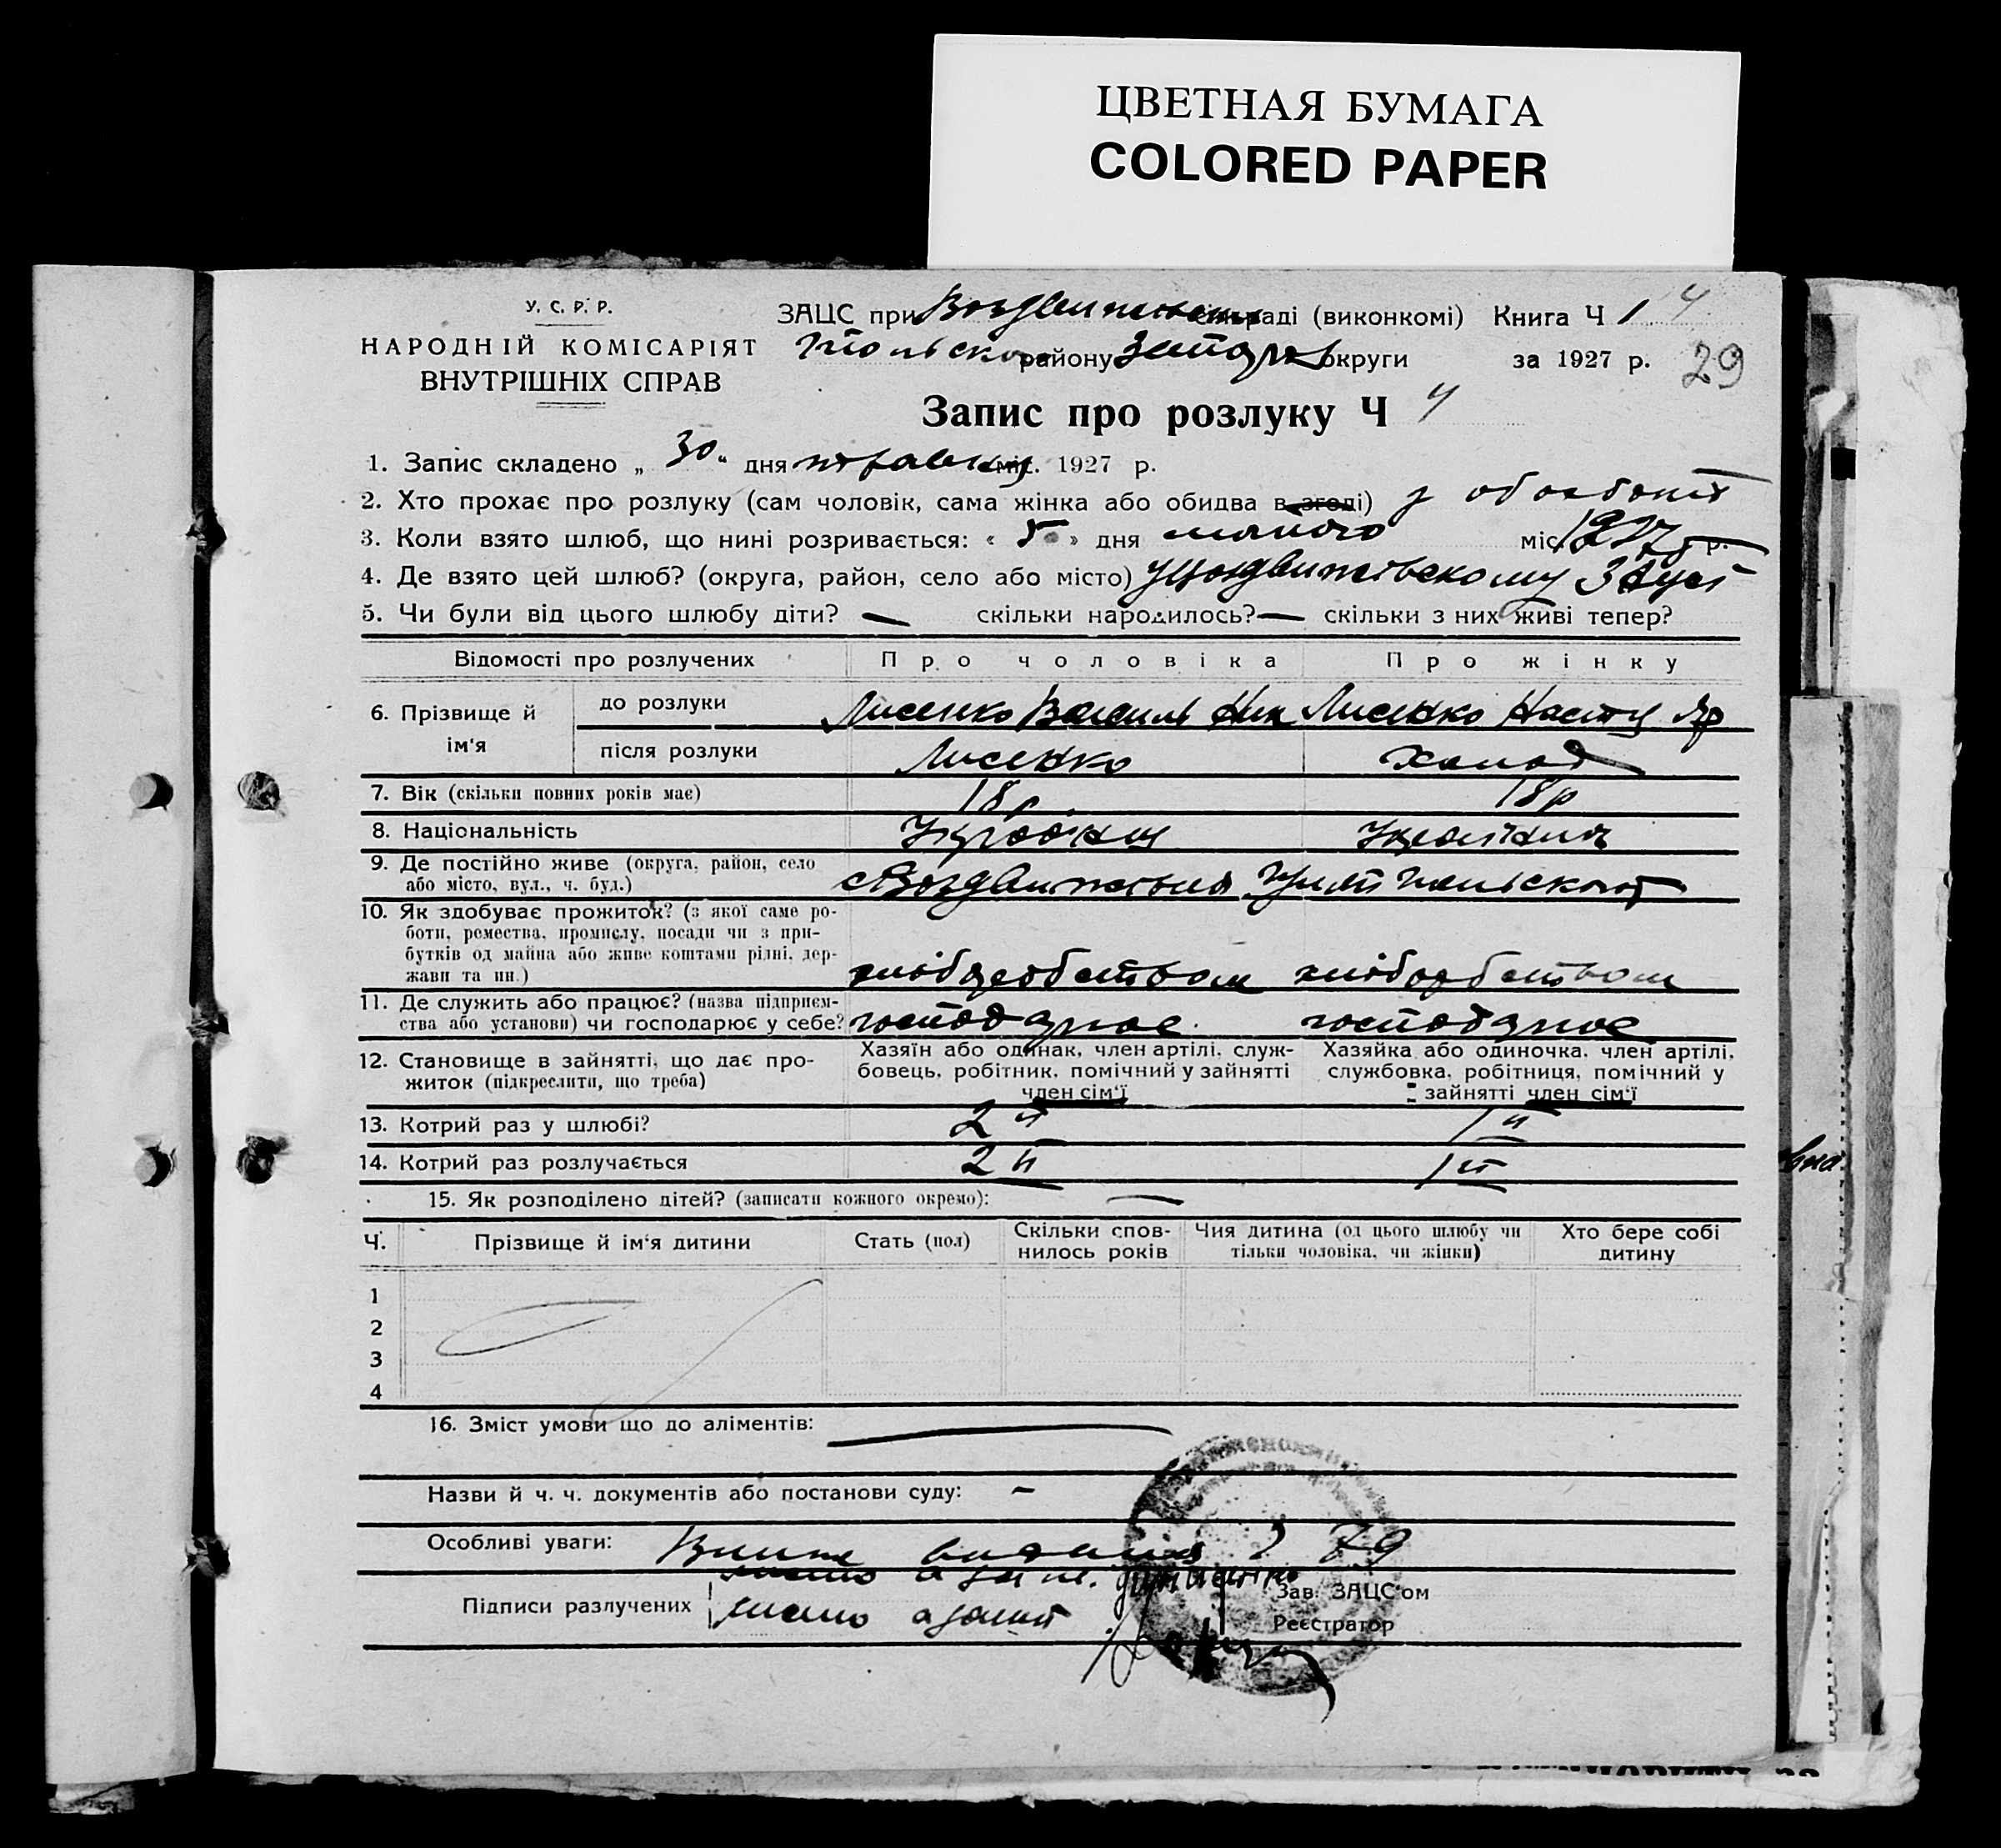 ЦВЕТНАЯ БУМАГА
COLORED PAPER
У. С. Р. Р.
НАРОДНІЙ КОМІСАРІЯТ
ВНУТРІШНІХ СПРАВ
ЗАЦС при раді (виконкомі) Книга Ч 1 4
району Запоріз округи за 1927 р. 29
Запис про розлуку Ч 4
1. Запис складено „ 30 “ дня травня міс. 1927 р.
2. Хто прохає про розлуку (сам чоловік, сама жінка або обидва в згоді)
3. Коли взято шлюб, що нині розривається: « 5 » дня лютого міс. 1927 р.
4. Де взято цей шлюб? (округа, район, село або місто)
5. Чи були від цього шлюбу діти? — скільки народилось? — скільки з них живі тепер?
Відомості про розлучених Про чоловіка Про жінку
6. Прізвище й ім'я до розлуки Лисенко Василь Ник Лисенко Настя Яр
після розлуки Лисенко
7. Вік (скільки повних років має) 18 р. 18 р
8. Національність
9. Де постійно живе (округа, район, село
або місто, вул., ч. буд.)
10. Як здобуває прожиток? (з якої саме ро-
боти, ремества, промислу, посади чи з при-
бутків од майна або живе коштами рідні, дер-
жави та ин.) хліборобством хліборобством
11. Де служить або працює? (назва підприєм-
ства або установи) чи господарює у себе? господарює господарює
12. Становище в зайнятті, що дає про-
житок (підкреслити, що треба)
Хазяїн або одинак, член артілі, служ-
бовець, робітник, помічний у зайнятті
член сім'ї
Хазяйка або одиночка, член артілі,
службовка, робітниця, помічний у
зайнятті член сім'ї
13. Котрий раз у шлюбі? 2й 1й
14. Котрий раз розлучається 2й 1й
15. Як розподілено дітей? (записати кожного окремо): —
Ч. Прізвище й ім'я дитини Стать (пол) Скільки спов-
нилось років Чия дитина (од цього шлюбу чи
тільки чоловіка, чи жінки) Хто бере собі
дитину
1
2
3
4
16. Зміст умови що до аліментів: —
Назви й ч. ч. документів або постанови суду: -
Особливі уваги:
Підписи разлучених
Зав. ЗАЦС'ом
Реєстратор